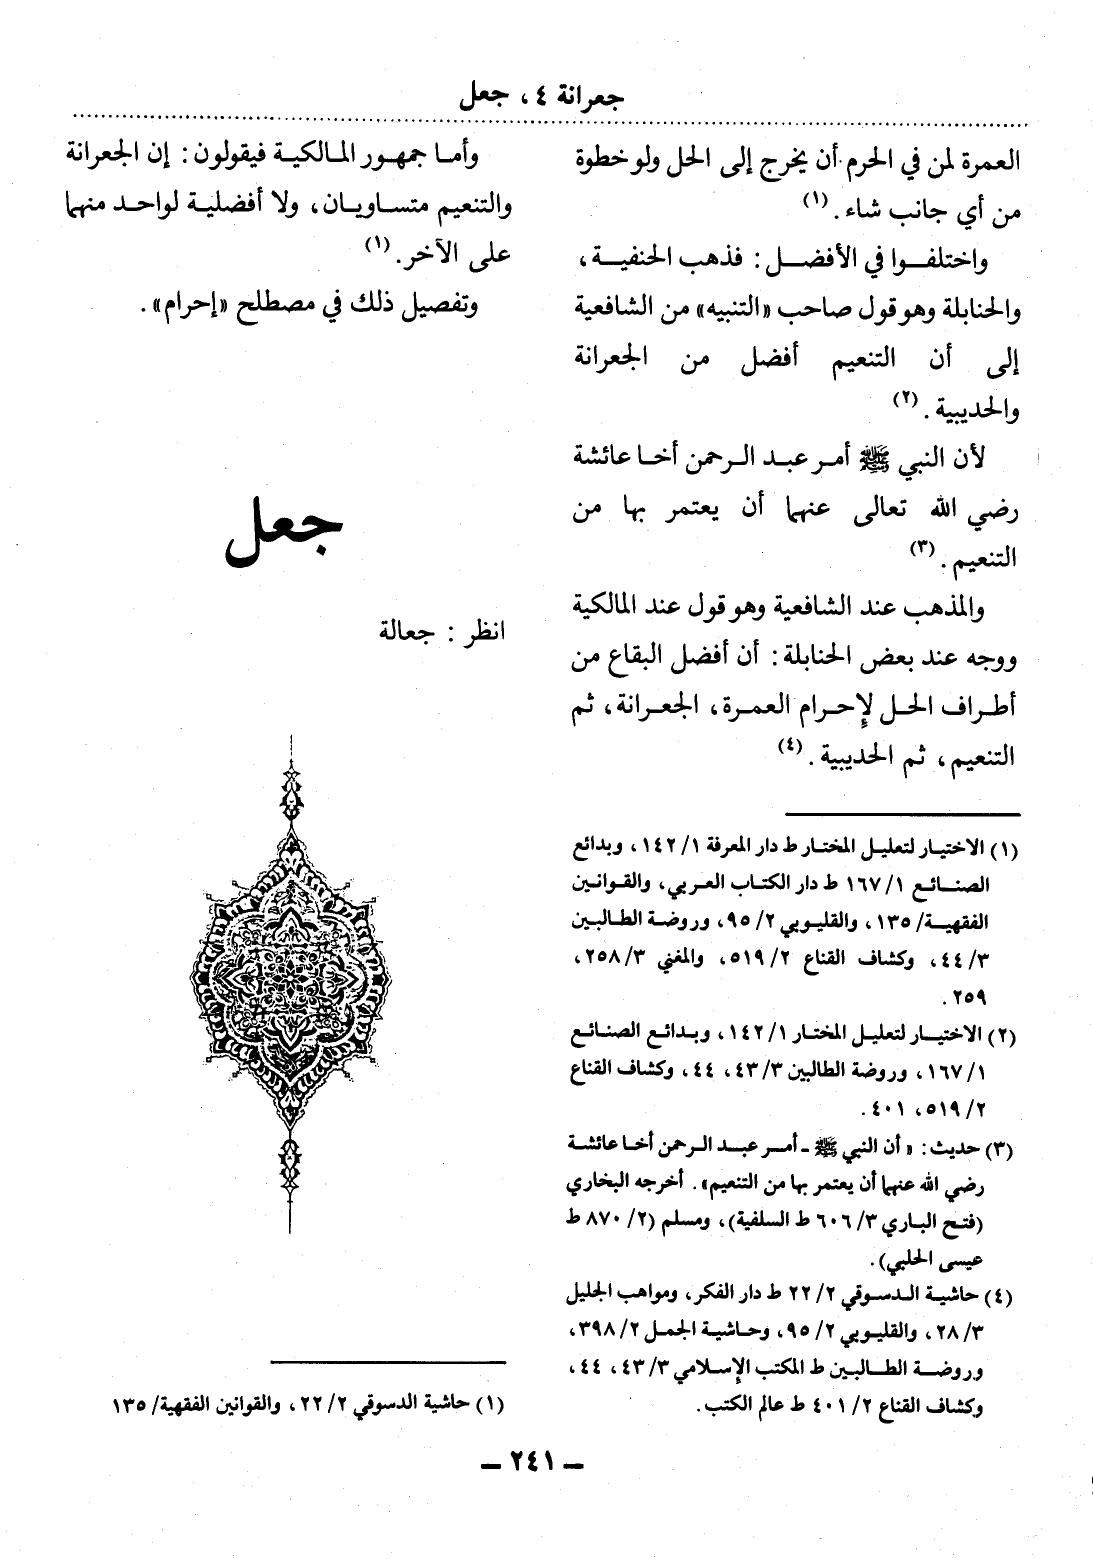 جعرانة ٤ ، جعل
العمرة لمن في الحرم أن يخرج إلى الحل ولو خطوة
من أي جانب شاء . (١)
واختلفوا في الأفضل : فذهب الحنفية ،
والحنابلة وهو قول صاحب «التنبيه» من الشافعية
إلى أن التنعيم أفضل من الجعرانة
والحديبية . (٢)
لأن النبي ﷺ أمر عبد الرحمن أخا عائشة
رضي الله تعالى عنهما أن يعتمر بها من
التنعيم . (٣)
والمذهب عند الشافعية وهو قول عند المالكية
ووجه عند بعض الحنابلة : أن أفضل البقاع من
أطراف الحل لإحرام العمرة ، الجعرانة ، ثم
التنعيم ، ثم الحديبية . (٤)
(١) الاختيار لتعليل المختار ط دار المعرفة ١/ ١٤٢ ، وبدائع
الصنائع ١/ ١٦٧ ط دار الكتاب العربي ، والقوانين
الفقهية/ ١٣٥ ، والقليوبي ٢/ ٩٥ ، وروضة الطالبين
٣/ ٤٤ ، وكشاف القناع ٢/ ٥١٩ ، والمغني ٣/ ٢٥٨ ،
٢٥٩ .
(٢) الاختيار لتعليل المختار ١/ ١٤٢ ، وبدائع الصنائع
١/ ١٦٧ ، وروضة الطالبين ٣/ ٤٣ ، ٤٤ ، وكشاف القناع
٢/ ٥١٩ ، ٤٠١ .
(٣) حديث : « أن النبي ﷺ - أمر عبد الرحمن أخا عائشة
رضي الله عنهما أن يعتمر بها من التنعيم» . أخرجه البخاري
(فتح الباري ٣/ ٦٠٦ ط السلفية) ، ومسلم (٢/ ٨٧٠ ط
عيسى الحلبي) .
(٤) حاشية الدسوقي ٢/ ٢٢ ط دار الفكر ، ومواهب الجليل
٣/ ٢٨ ، والقليوبي ٢/ ٩٥ ، وحاشية الجمل ٢/ ٣٩٨ ،
وروضة الطالبين ط المكتب الإسلامي ٣/ ٤٣ ، ٤٤ ،
وكشاف القناع ٢/ ٤٠١ ط عالم الكتب .
وأما جمهور المالكية فيقولون : إن الجعرانة
والتنعيم متساويان ، ولا أفضلية لواحد منهما
على الآخر . (١)
وتفصيل ذلك في مصطلح «إحرام» .
جعل
انظر : جعالة
(١) حاشية الدسوقي ٢/ ٢٢ ، والقوانين الفقهية/ ١٣٥
ـ ٢٤١ ـ